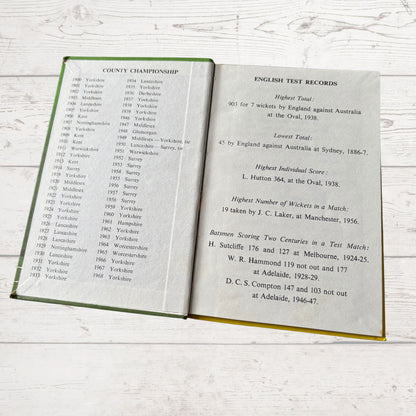 COUNTY CHAMPIONSHIP
1900 Yorkshire
1901 Yorkshire
1902 Yorkshire
1903 Middlesex
1904 Lancashire
1905 Yorkshire
1906 Kent
1907 Nottinghamshire
1908 Yorkshire
1909 Kent
1910 Kent
1911 Warwickshire
1912 Yorkshire
1913 Kent
1914 Surrey
1919 Yorkshire
1920 Middlesex
1921 Middlesex
1922 Yorkshire
1923 Yorkshire
1924 Yorkshire
1925 Yorkshire
1926 Lancashire
1927 Lancashire
1928 Lancashire
1929 Nottinghamshire
1930 Lancashire
1931 Yorkshire
1932 Yorkshire
1933 Yorkshire
1934 Lancashire
1935 Yorkshire
1936 Derbyshire
1937 Yorkshire
1938 Yorkshire
1939 Yorkshire
1946 Yorkshire
1947 Middlesex
1948 Glamorgan
1949 Middlesex—Yorkshire, tie
1950 Lancashire—Surrey, tie
1951 Warwickshire
1952 Surrey
1953 Surrey
1954 Surrey
1955 Surrey
1956 Surrey
1957 Surrey
1958 Surrey
1959 Yorkshire
1960 Yorkshire
1961 Hampshire
1962 Yorkshire
1963 Yorkshire
1964 Worcestershire
1965 Worcestershire
1966 Yorkshire
1967 Yorkshire
1968 Yorkshire
ENGLISH TEST RECORDS
Highest Total:
903 for 7 wickets by England against Australia
at the Oval, 1938.
Lowest Total:
45 by England against Australia at Sydney, 1886-7.
Highest Individual Score:
L. Hutton 364, at the Oval, 1938.
Highest Number of Wickets in a Match:
19 taken by J. C. Laker, at Manchester, 1956.
Batsmen Scoring Two Centuries in a Test Match:
H. Sutcliffe 176 and 127 at Melbourne, 1924-25.
W. R. Hammond 119 not out and 177
at Adelaide, 1928-29.
D. C. S. Compton 147 and 103 not out
at Adelaide, 1946-47.